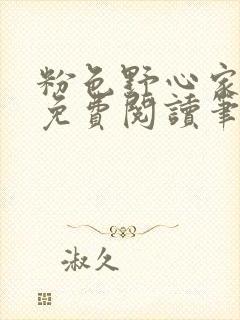 粉色野心家
免費閱讀筆
淑久